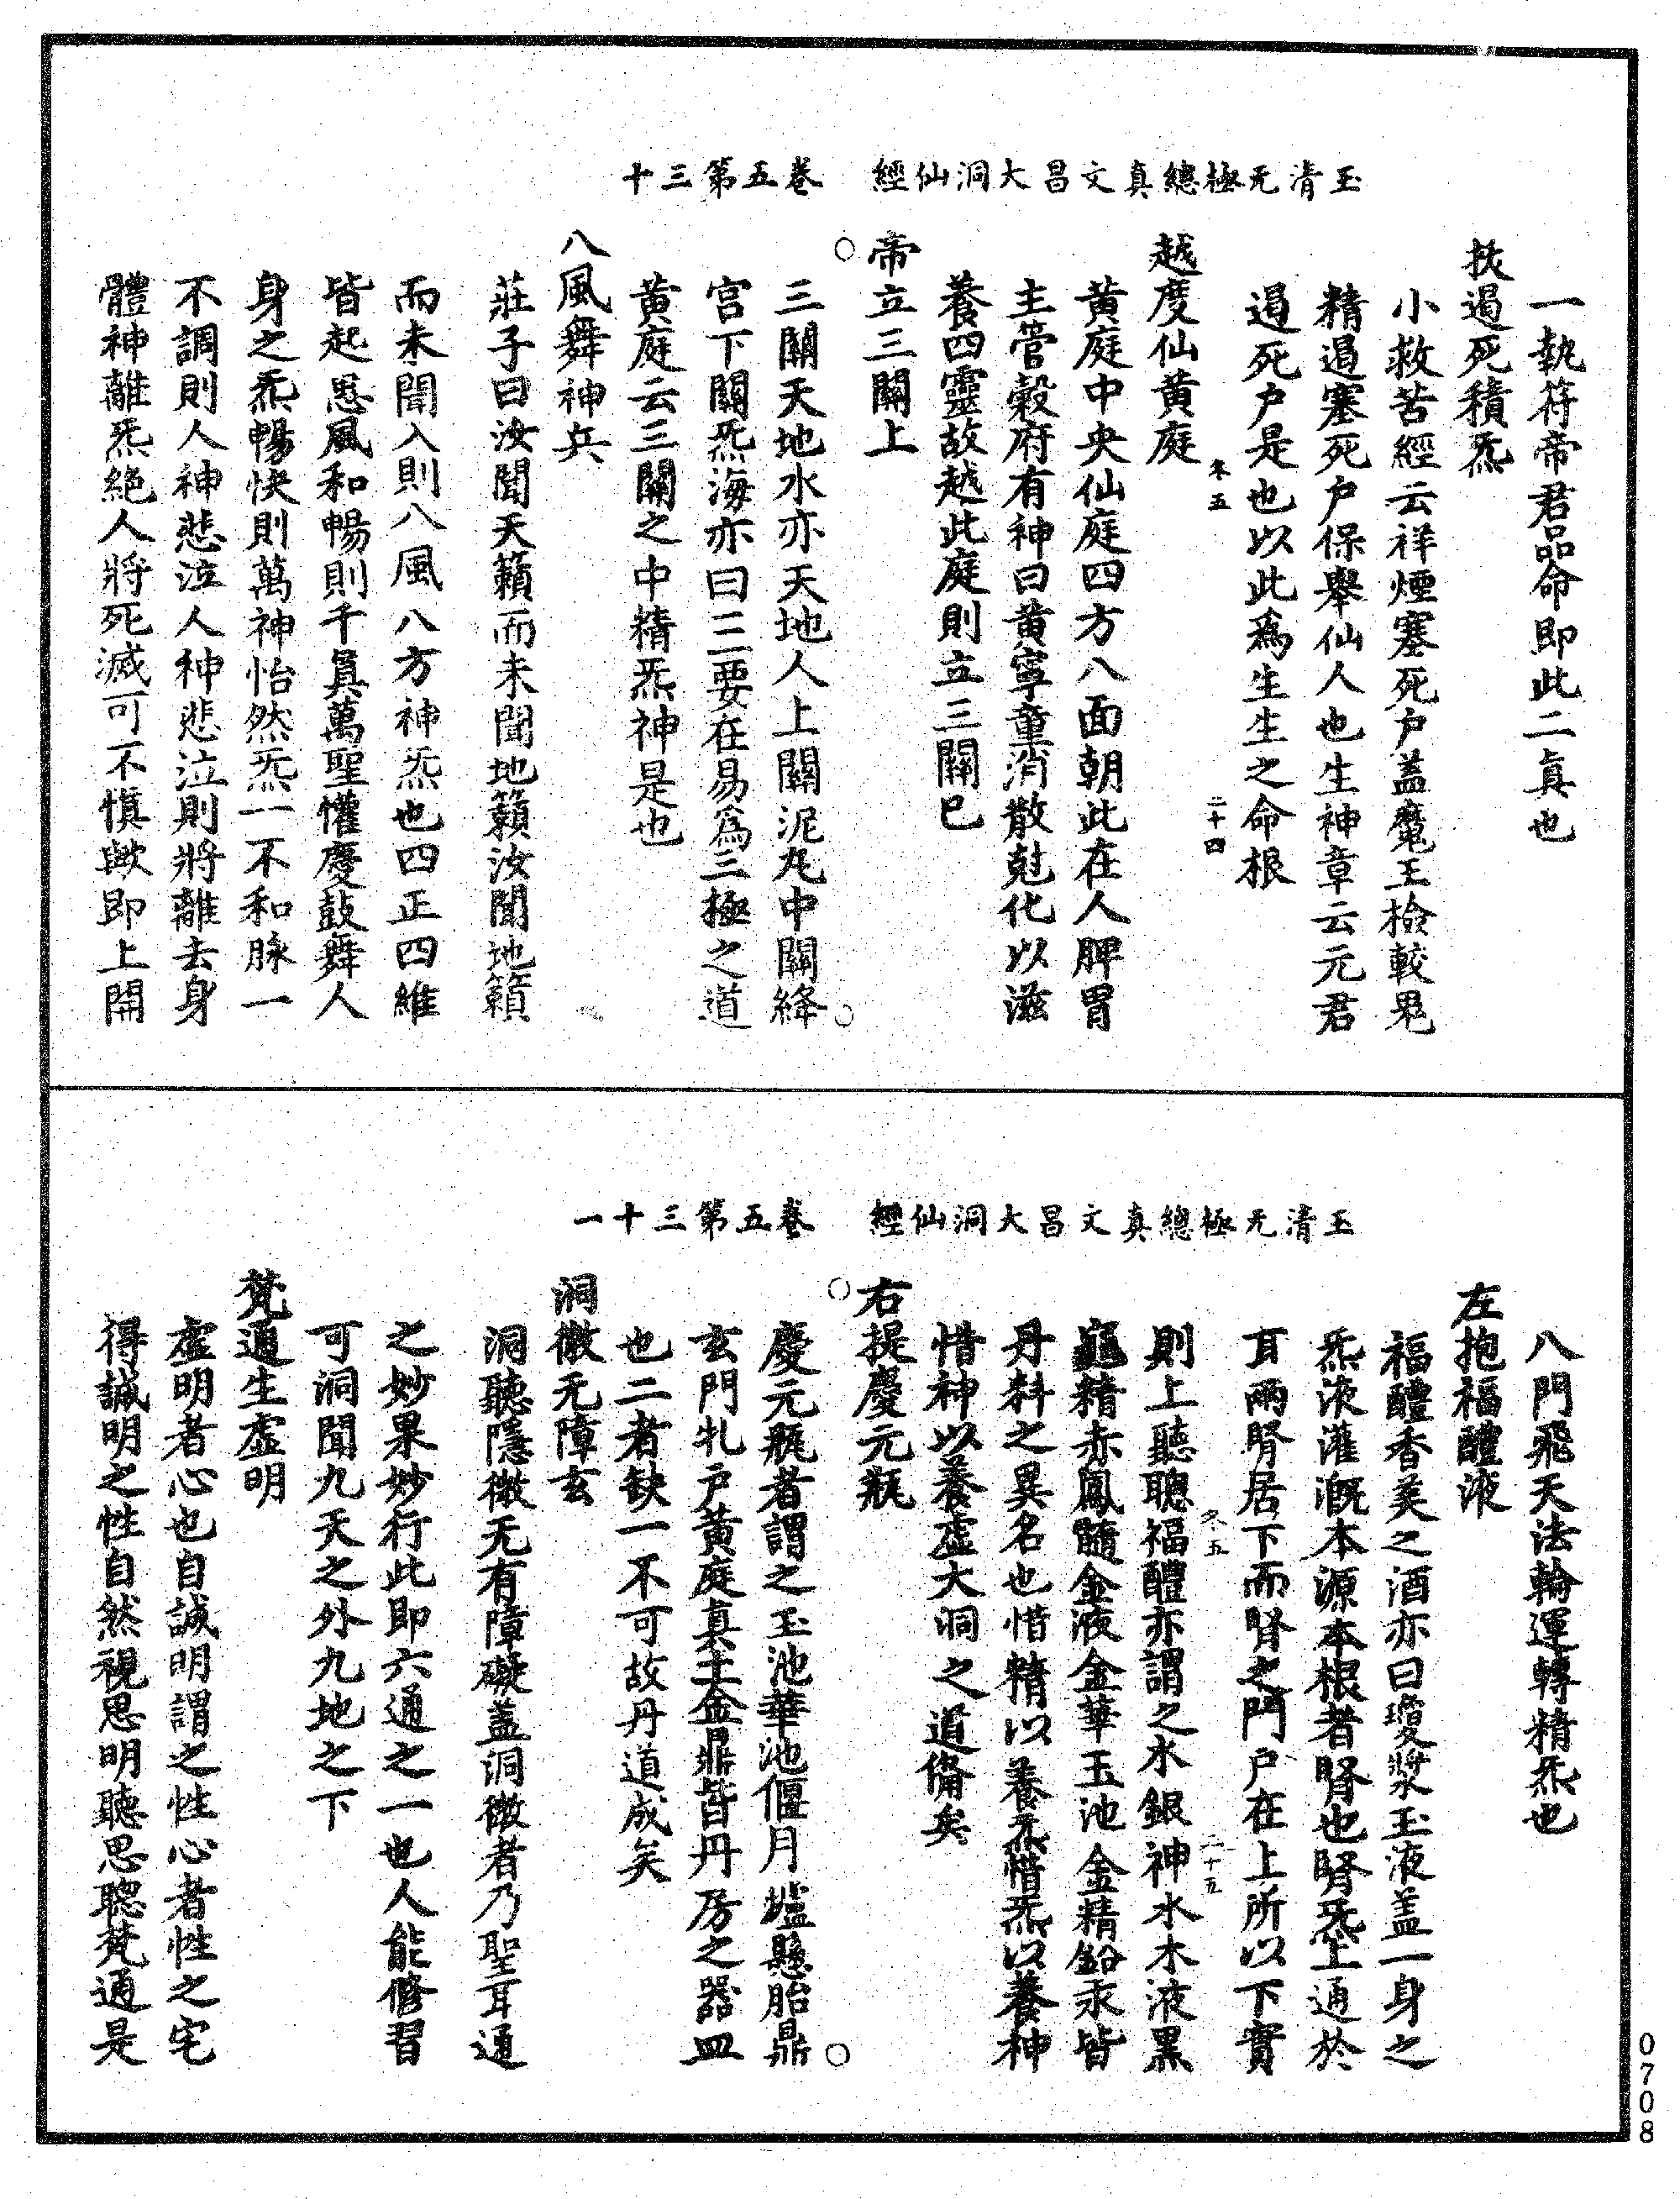 玉清无極總真文昌大洞仙經　卷五第三十
一執符帝君品命即此二真也
扷遏死積炁
小救苦經云祥煙塞死户盖魔王檢較鬼
精遏塞死户保舉仙人也生神章云元君
遏死户是也以此爲生生之命根
越度仙黄庭
黄庭中央仙庭四方八面朝此在人脾胃
主管穀府有神曰黄寧童消散尅化以滋
養四靈故越此庭則立三關巳
帝立三關上
三關天地水亦天地人上關泥丸中關絳
宫下關炁海亦曰三要在易爲三極之道
黄庭云三關之中精炁神是也
八風舞神兵
莊子曰汝聞天籟而未聞地籟汝聞地籟
而未聞入則八風八方神炁也四正四維
皆起恩風和暢則千真萬聖懽慶鼓舞人
身之炁暢快則萬神怡然炁一不和脉一
不調則人神悲泣人神悲泣則將離去身
體神離炁絶人將死滅可不慎歟即上開
二十四
玉清无極總真文昌大洞仙經　卷五第三十一
八門飛天法輪運轉精炁也
左抱福醴液
福醴香美之酒亦曰瓊漿玉液盖一身之
炁液灌溉本源本根者腎也腎炁上通於
耳兩腎居下而腎之門户在上所以下實
則上聽聰福醴亦謂之水銀神水木液黑
龜精赤鳳髓金液金華玉池金精鉛汞皆
丹料之異名也惜精以養炁惜炁以養神
惜神以養虚大洞之道備矣
右提慶元瓶
慶元瓶者謂之玉池華池偃月壚懸胎鼎
玄門牝户黄庭真土金鼎皆丹房之器皿
也二者缺一不可故丹道成矣
洞徹无障玄
洞聽隱微无有障礙盖洞徹者乃聖耳通
之妙果妙行此即六通之一也人能修習
可洞聞九天之外九地之下
梵通生虚明
虚明者心也自誠明謂之性心者性之宅
得誠明之性自然視思明聽思聰梵通是
二十五
0708